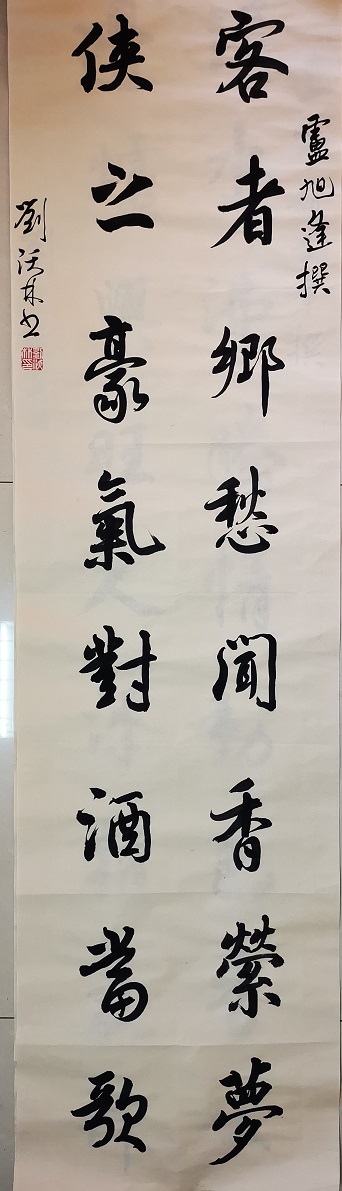 盧旭逢撰
客者鄉愁聞香縈夢
俠之豪氣對酒當歌
劉沃林书